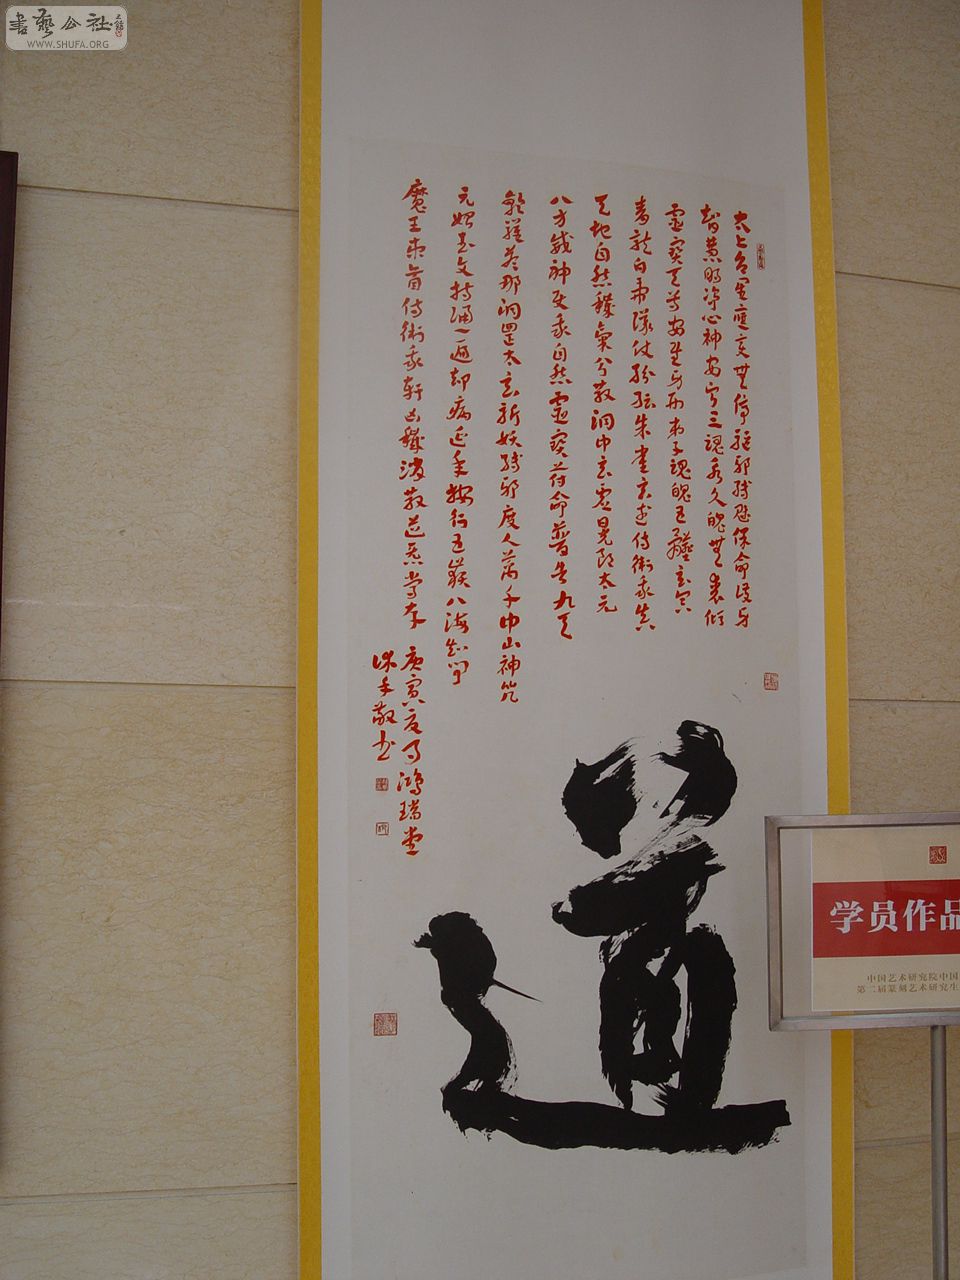 書藝公社
WWW.SHUFA.ORG
太上台星應變無停驅邪縛魅保命護身
智慧明淨心神安寧三魂永久魄無喪傾
靈寶天尊安慰身形弟子魂魄五臟玄冥
青龍白虎隊仗紛紜朱雀玄武侍衛我真
天地自然穢氣分散洞中玄虛晃朗太元
八方威神使我自然靈寶符命普告九天
乾羅荅那洞罡太玄斬妖縛邪度人萬千中山神咒
元始玉文持誦一遍却病延年按行五嶽八海知聞
魔王束首侍衛我軒凶穢消散道炁常存
庚寅夏月鴻瑞堂
敬書
道
学员作品
中国艺术研究院中国
第二届篆刻艺术研究生